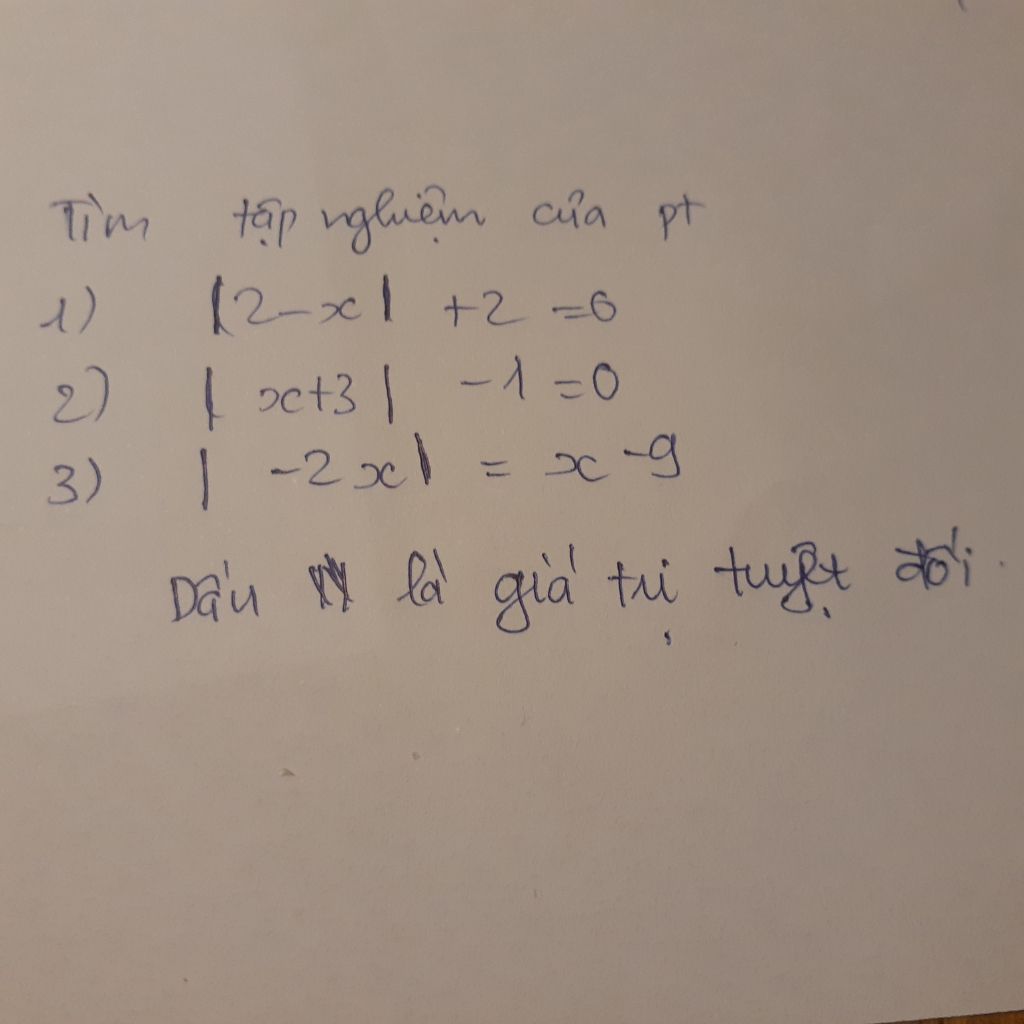 Tìm tập nghiệm của pt
1) |2-x| +2 =6
2) | x+3 | -1 =0
3) | -2x| = x -9
Dấu || là giá trị tuyệt đối.